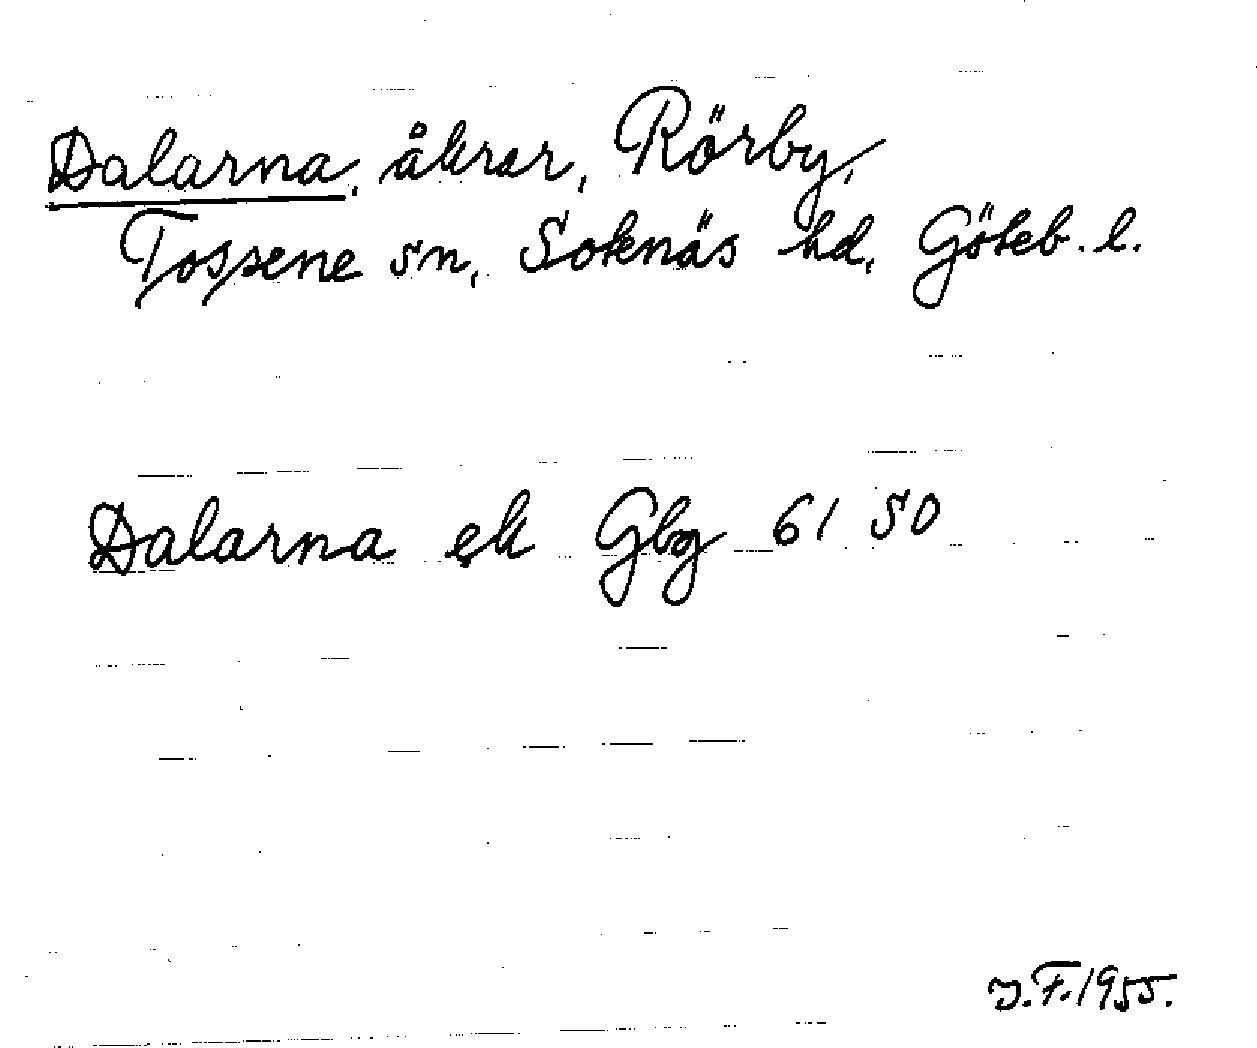 Dalarna, åkrar, Rörby,
Tossene sn, Sotenäs hd, Göteb. l.
Dalarna ek Gbg 61 50
J.F. 1955.